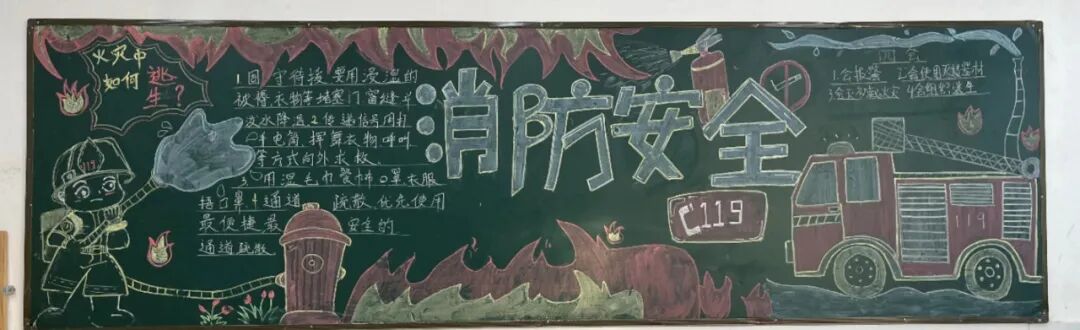 火灾中
如何
逃生?
1固守待援要用浸湿的
被褥衣物等堵塞门窗缝
泼水降温2传递信号用打
手电筒挥舞衣物呼叫
等方式向外求救
3用湿毛巾餐布口罩衣服
捂口鼻4通道 疏散优先使用
最便捷最 安全的
通道疏散
消防安全
119
四会
1会报警 2会使用灭
4会组织逃生
119
119